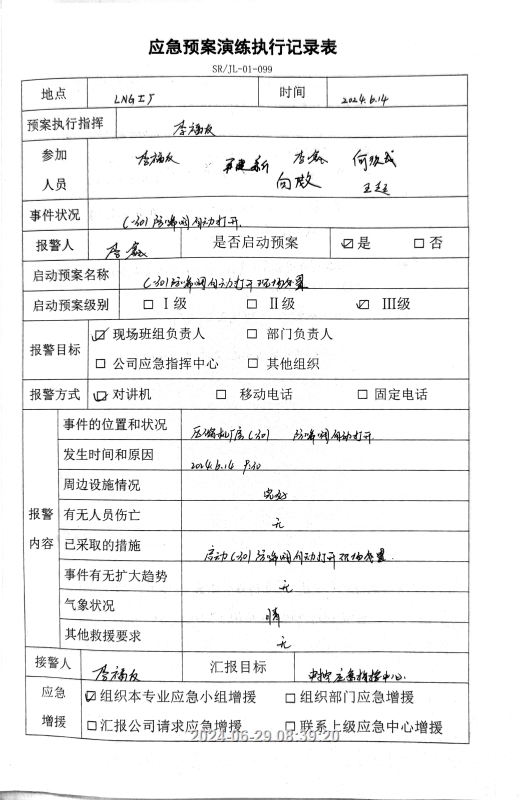 应急预案演练执行记录表
SR/JL-01-099
地点 LNG工厂 时间 2024.6.14
预案执行指挥 李福友
参加人员 李福友 李鑫
向敞 王超
事件状况 C-301防喘阀自动打开.
报警人 李鑫 是否启动预案 ☑是 □否
启动预案名称 C-301防喘阀自动打开现场处置
启动预案级别 □Ⅰ级 □Ⅱ级 ☑Ⅲ级
报警目标 ☑现场班组负责人 □部门负责人
□公司应急指挥中心 □其他组织
报警方式 ☑对讲机 □移动电话 □固定电话
报警内容
事件的位置和状况 压缩机厂房C-301 防喘阀自动打开.
发生时间和原因 2024.6.14 9:30
周边设施情况 完好
有无人员伤亡 无
已采取的措施 启动C-301防喘阀自动打开现场处置.
事件有无扩大趋势 无
气象状况 晴
其他救援要求 无
接警人 李福友 汇报目标 中控应急指挥中心.
应急增援 ☑组织本专业应急小组增援 □组织部门应急增援
□汇报公司请求应急增援 □联系上级应急中心增援
2024-06-29 08:39:20